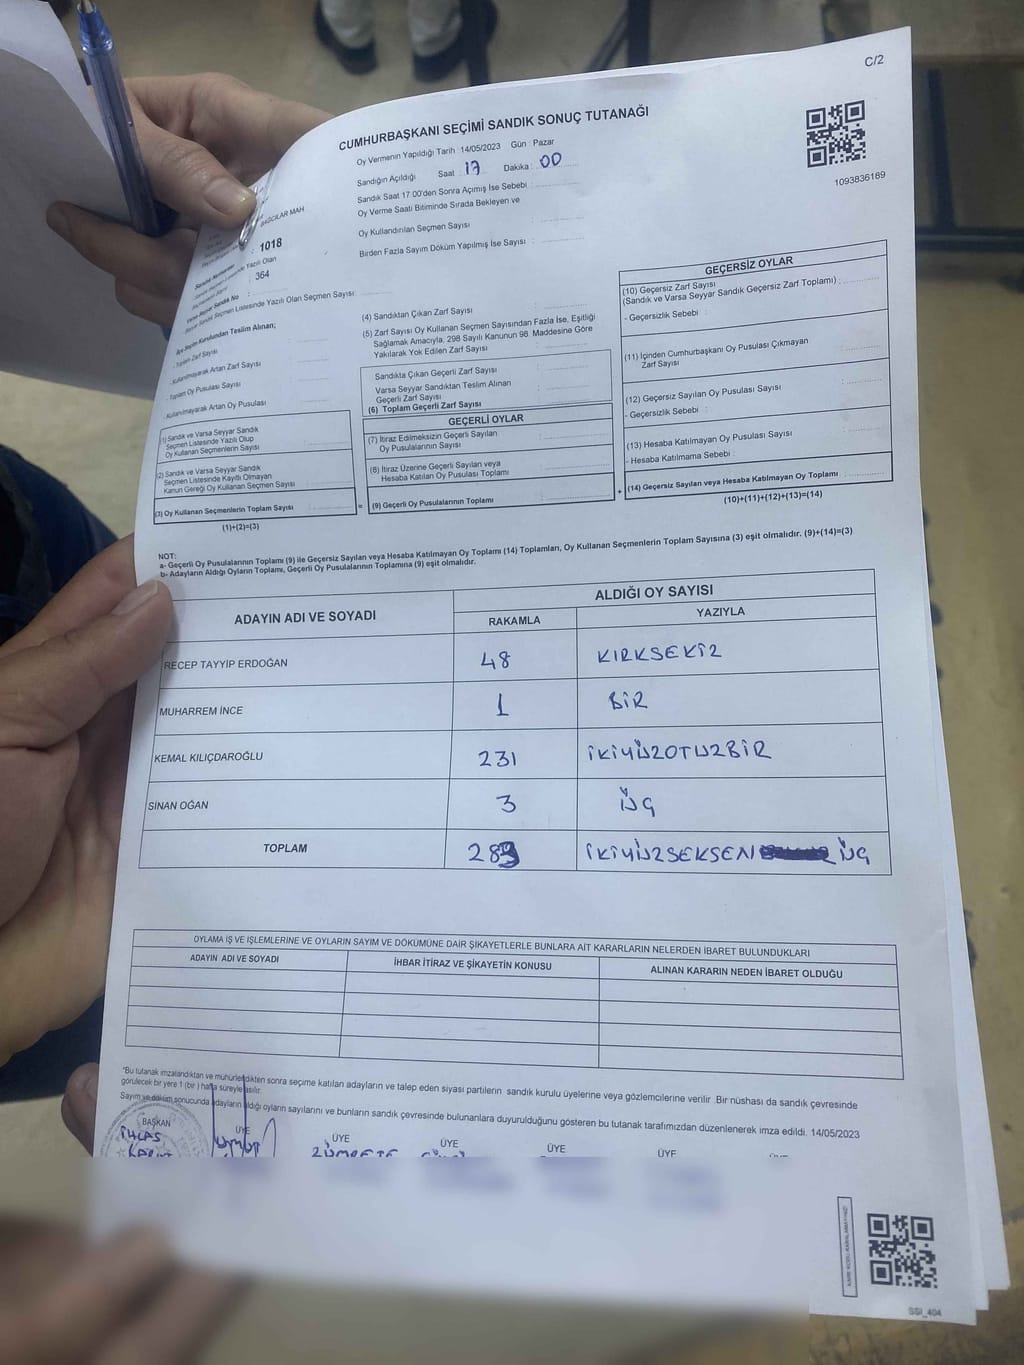 C/2
CUMHURBAŞKANI SEÇİMİ SANDIK SONUÇ TUTANAĞI
Oy Vermenin Yapıldığı Tarih : 14/05/2023 Gün : Pazar
Sandığın Açıldığı Saat : 17 Dakika : 00
Sandık Saat 17:00'den Sonra Açımış İse Sebebi :
Oy Verme Saati Bitiminde Sırada Bekleyen ve
Oy Kullandırılan Seçmen Sayısı :
Birden Fazla Sayım Döküm Yapılmış İse Sayısı :
1093836189
BAĞCILAR MAH
: 1018
Yazılı Olan
: 364
Seçmen Listesinde Yazılı Olan Seçmen Sayısı :
İlçe Seçim Kurulundan Teslim Alınan;
- Toplam Zarf Sayısı
- Kullanılmayarak Artan Zarf Sayısı
- Toplam Oy Pusulası Sayısı
- Kullanılmayarak Artan Oy Pusulası
(1) Sandık ve Varsa Seyyar Sandık
Seçmen Listesinde Yazılı Olup
Oy Kullanan Seçmenlerin Sayısı
(2) Sandık ve Varsa Seyyar Sandık
Seçmen Listesinde Kayıtlı Olmayan
Kanun Gereği Oy Kullanan Seçmen Sayısı
(3) Oy Kullanan Seçmenlerin Toplam Sayısı
(1)+(2)=(3)
(4) Sandıktan Çıkan Zarf Sayısı
(5) Zarf Sayısı Oy Kullanan Seçmen Sayısından Fazla İse, Eşitliği
Sağlamak Amacıyla, 298 Sayılı Kanunun 98. Maddesine Göre
Yakılarak Yok Edilen Zarf Sayısı
Sandıkta Çıkan Geçerli Zarf Sayısı
Varsa Seyyar Sandıktan Teslim Alınan
Geçerli Zarf Sayısı
(6) Toplam Geçerli Zarf Sayısı
GEÇERLİ OYLAR
(7) İtiraz Edilmeksizin Geçerli Sayılan
Oy Pusulalarının Sayısı
(8) İtiraz Üzerine Geçerli Sayılan veya
Hesaba Katılan Oy Pusulası Toplamı
= (9) Geçerli Oy Pusulalarının Toplamı
GEÇERSİZ OYLAR
(10) Geçersiz Zarf Sayısı
(Sandık ve Varsa Seyyar Sandık Geçersiz Zarf Toplamı) :
- Geçersizlik Sebebi :
(11) İçinden Cumhurbaşkanı Oy Pusulası Çıkmayan
Zarf Sayısı
(12) Geçersiz Sayılan Oy Pusulası Sayısı
- Geçersizlik Sebebi :
(13) Hesaba Katılmayan Oy Pusulası Sayısı
- Hesaba Katılmama Sebebi :
+ (14) Geçersiz Sayılan veya Hesaba Katılmayan Oy Toplamı
(10)+(11)+(12)+(13)=(14)
NOT:
a- Geçerli Oy Pusulalarının Toplamı (9) ile Geçersiz Sayılan veya Hesaba Katılmayan Oy Toplamı (14) Toplamları, Oy Kullanan Seçmenlerin Toplam Sayısına (3) eşit olmalıdır. (9)+(14)=(3)
b- Adayların Aldığı Oyların Toplamı, Geçerli Oy Pusulalarının Toplamına (9) eşit olmalıdır.
ADAYIN ADI VE SOYADI ALDIĞI OY SAYISI
RAKAMLA YAZIYLA
RECEP TAYYİP ERDOĞAN 48 KIRKSEKİZ
MUHARREM İNCE 1 BİR
KEMAL KILIÇDAROĞLU 231 İKİYÜZOTUZBİR
SİNAN OĞAN 3 ÜÇ
TOPLAM 283 İKİYÜZSEKSEN ÜÇ
OYLAMA İŞ VE İŞLEMLERİNE VE OYLARIN SAYIM VE DÖKÜMÜNE DAİR ŞİKAYETLERLE BUNLARA AİT KARARLARIN NELERDEN İBARET BULUNDUKLARI
ADAYIN ADI VE SOYADI İHBAR İTİRAZ VE ŞİKAYETİN KONUSU ALINAN KARARIN NEDEN İBARET OLDUĞU
*Bu tutanak imzalandıktan ve mühürlendikten sonra seçime katılan adayların ve talep eden siyasi partilerin sandık kurulu üyelerine veya gözlemcilerine verilir. Bir nüshası da sandık çevresinde
görülecek bir yere 1 (bir ) hafta süreyle asılır.
Sayım ve döküm sonucunda adayların aldığı oyların sayılarını ve bunların sandık çevresinde bulunanlara duyurulduğunu gösteren bu tutanak tarafımızdan düzenlenerek imza edildi. 14/05/2023
BAŞKAN ÜYE ÜYE ÜYE ÜYE ÜYE
İHLAS
SSI_404